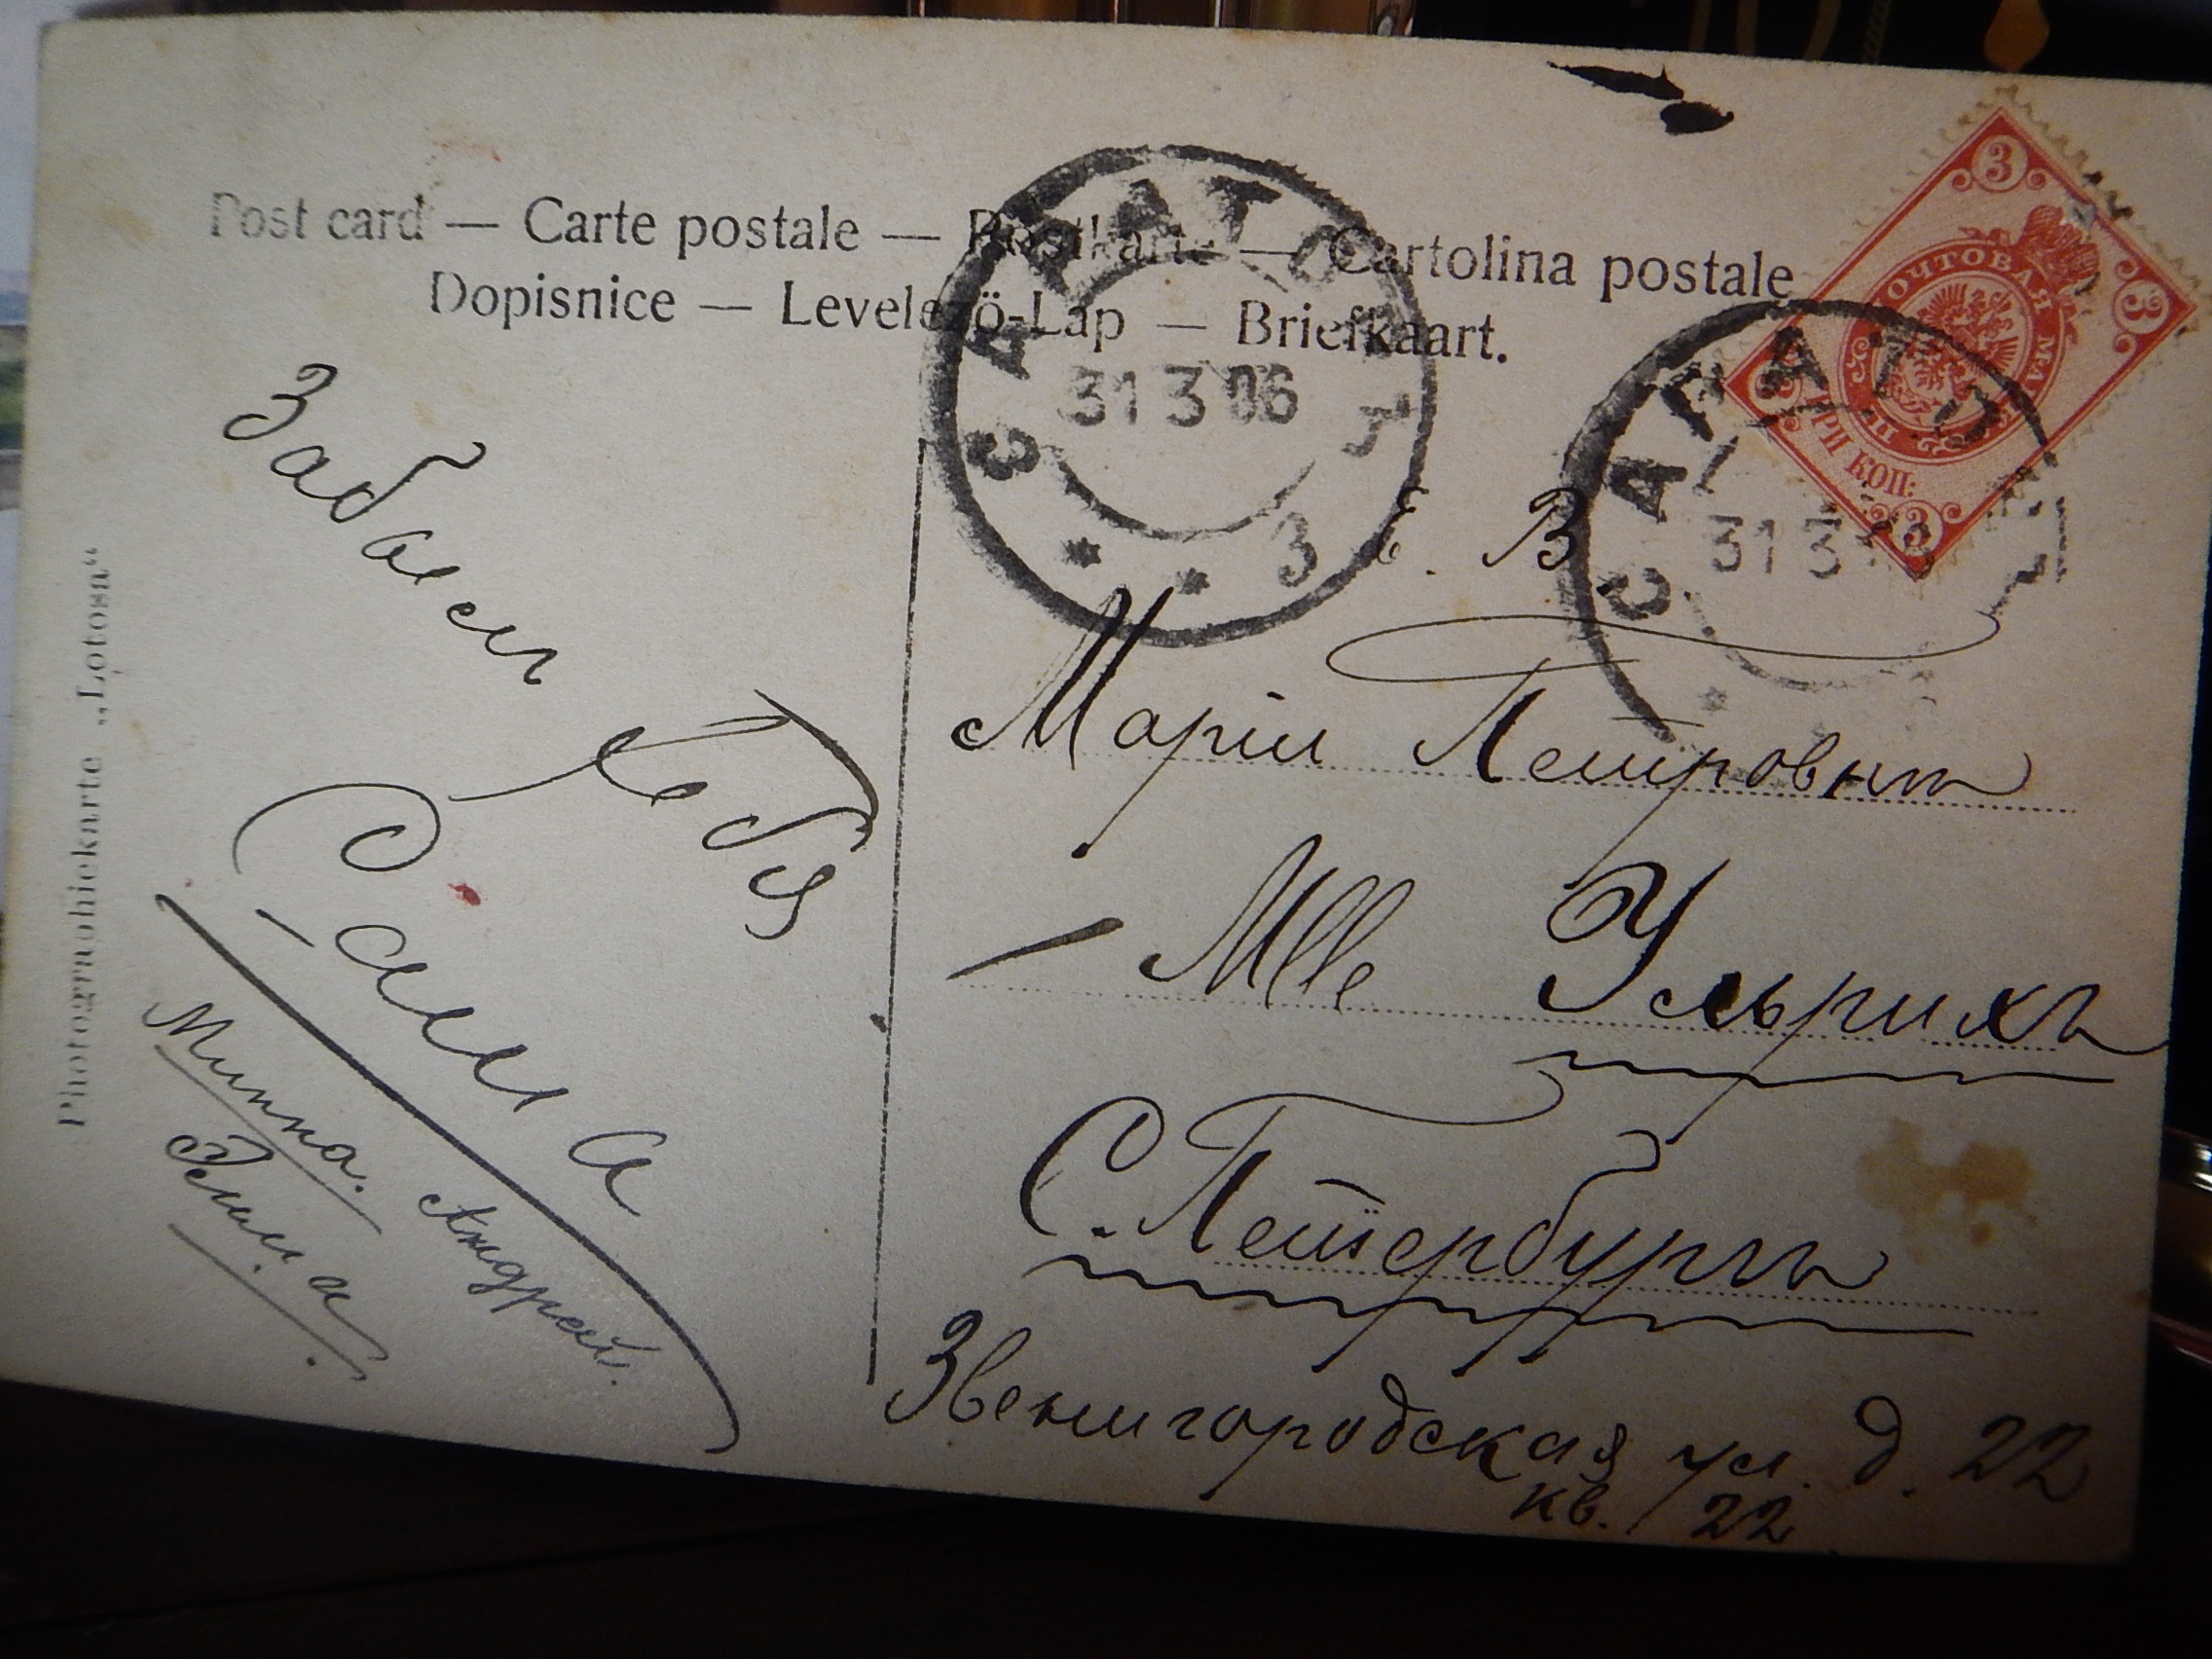 Post card — Carte postale — Postkarte — Cartolina postale
Dopisnice — Levelező-Lap — Briefkaart.
САРАТОВ
31 3 06
3
САРАТО
31 3
ПОЧТОВАЯ МАРКА
ТРИ КОП:
3
3
3
3
Е. В
Маріи Петровнѣ
Mlle Ульрихъ
С. Петербургъ
Звенигородская ул. д. 22
кв. 22
тебя
Саша
Минна.
Андрей.
Photographiekarte „Lotosa“